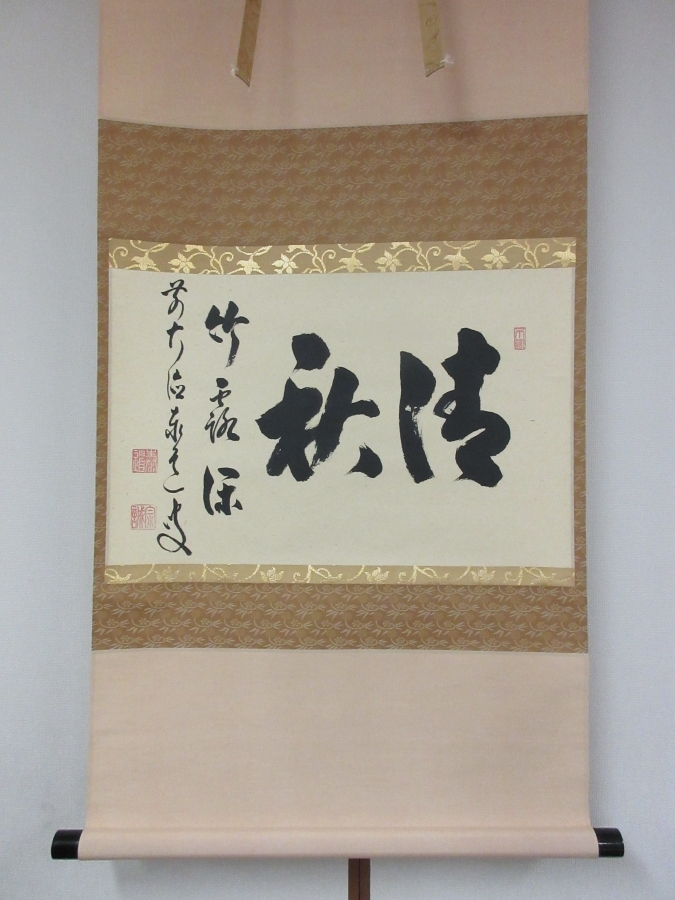 清秋
竹露深
前大徳泰道叟